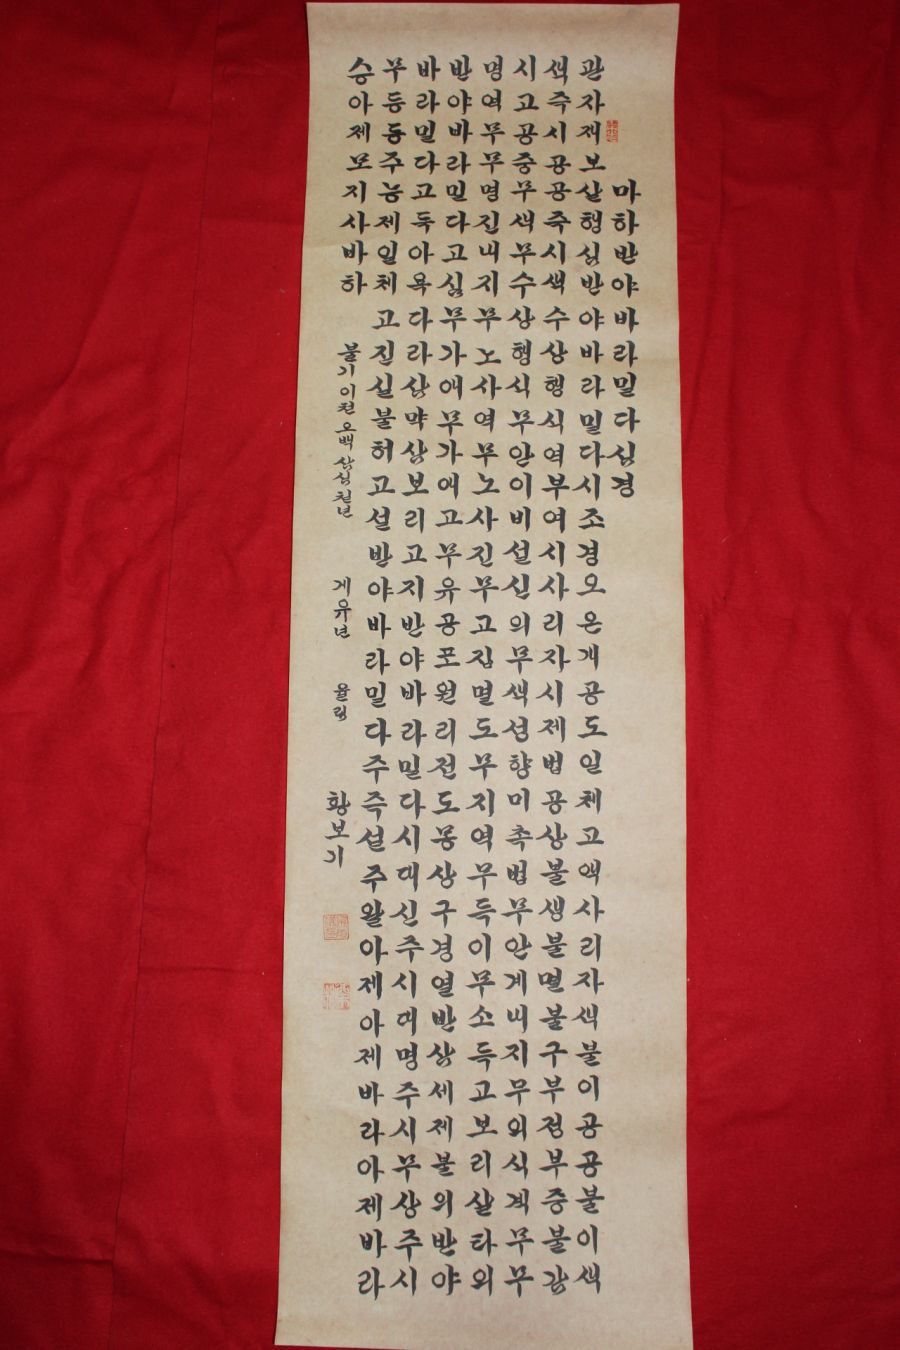 마하반야바라밀다심경
관자재보살행심반야바라밀다시조경오온개공도일체고액사리자색불이공공불이색
색즉시공공즉시색수상행식역부여시사리자시제법공상불생불멸불구부정부증불감
시고공중무색무수상행식무안이비설신의무색성향미촉법무안게내지무의식계무무
명역무무명진내지무노사역무노사진무고집멸도무지역무득이무소득고보리살타의
반야바라밀다고심무가애무가애고무유공포원리전도몽상구경열반상세제불의반야
바라밀다고득아욕다라삼먁삼보리고지반야바라밀다시대신주시대명주시무상주시
무등등주능제일체고진실불허고설반야바라밀다주즉설주왈아제아제바라아제바라
승아제모지사바하
불기이천오백삼십칠년 게유년 율림 황보기